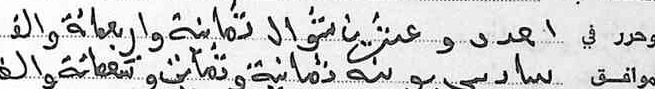 وحرر في احدى وعشرين شوال ثمانية واربعمائة والف
موافق سادس يونيه ثمانية وثمانين وتسعمائة والف